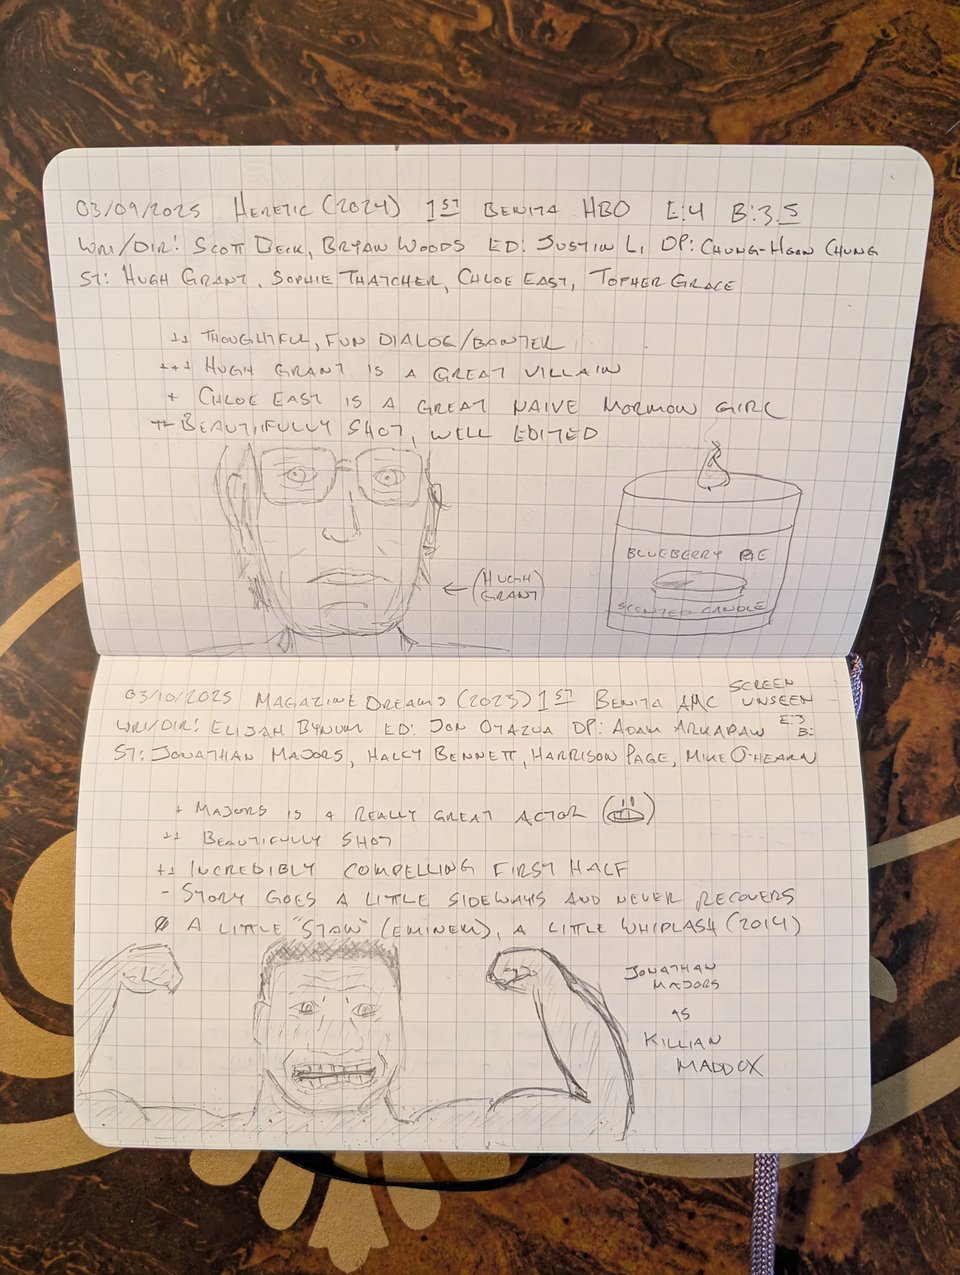 03/09/2025 HERETIC (2024) 1ST BENITA HBO E:4 B:3.5
WRI/DIR: SCOTT BECK, BRYAN WOODS ED: JUSTIN LI DP: CHUNG-HOON CHUNG
ST: HUGH GRANT, SOPHIE THATCHER, CHLOE EAST, TOPHER GRACE
++ THOUGHTFUL, FUN DIALOG/BANTER
+++ HUGH GRANT IS A GREAT VILLAIN
+ CHLOE EAST IS A GREAT NAIVE MORMON GIRL
++ BEAUTIFULLY SHOT, WELL EDITED
← (HUGH
GRANT)
BLUEBERRY PIE
SCENTED CANDLE
03/10/2025 MAGAZINE DREAMS (2023) 1ST BENITA AMC SCREEN UNSEEN
WRI/DIR: ELIJAH BYNUM ED: JON OTAZUA DP: ADAM ARKAPAW E:3 B:
ST: JONATHAN MAJORS, HALEY BENNETT, HARRISON PAGE, MIKE O'HEARN
+ MAJORS IS A REALLY GREAT ACTOR
++ BEAUTIFULLY SHOT
++ INCREDIBLY COMPELLING FIRST HALF
- STORY GOES A LITTLE SIDEWAYS AND NEVER RECOVERS
Ø A LITTLE "STAN" (EMINEM), A LITTLE WHIPLASH (2014)
JONATHAN
MAJORS
AS
KILLIAN
MADDOX